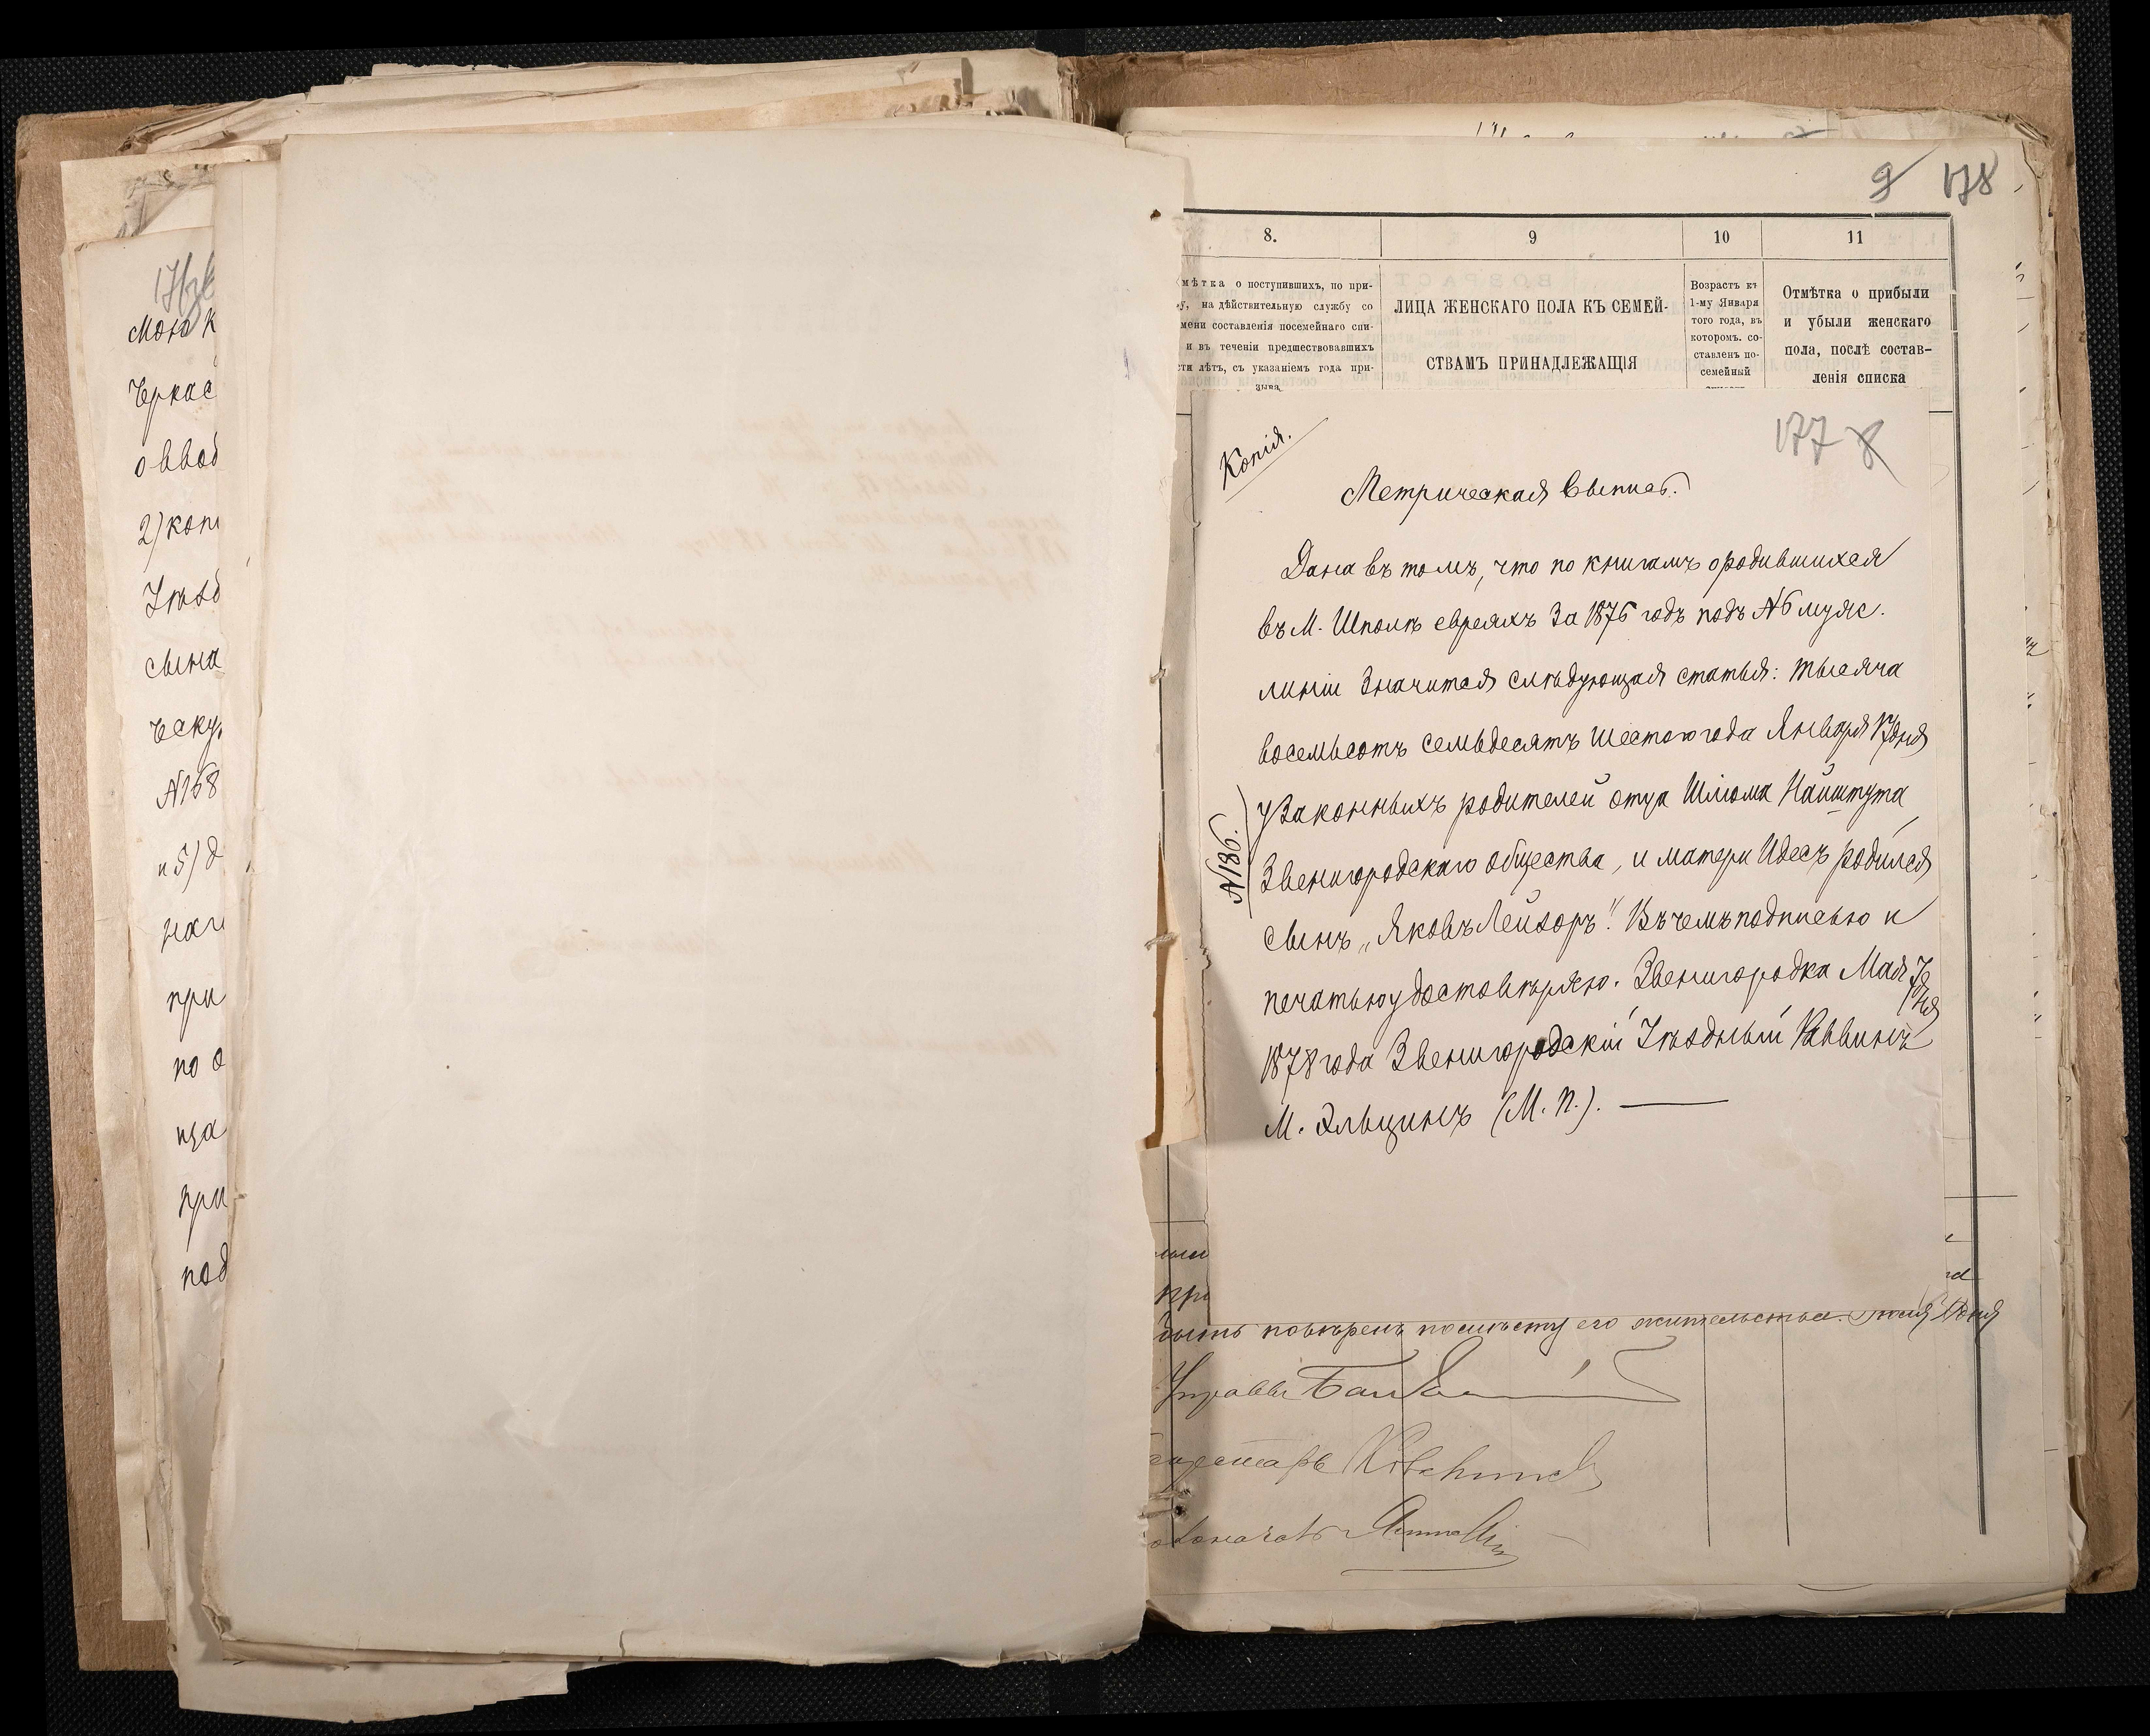 176
Мою к
Черкас
о ввод
2) коп
Уѣзд
сына
ческу
№ 158
и 5) д
наг
при
по о
ща
при
под
9 178
8.
9
10
11
мѣтка о поступившихъ, по при-
у, на дѣйствительную службу со
мени составленія посемейнаго спи-
и въ теченіи предшествовавшихъ
сти лѣтъ, съ указаніемъ года при-
зыва
ЛИЦА ЖЕНСКАГО ПОЛА КЪ СЕМЕЙ-
СТВАМЪ ПРИНАДЛЕЖАЩІЯ
Возрастъ къ
1-му Января
того года, въ
которомъ. со-
ставленъ по-
семейный
Отмѣтка о прибыли
и убыли женскаго
пола, послѣ состав-
ленія списка
177 8
Копія.
Метрическая выпись.
Дана въ томъ, что по книгамъ о родившихся
въ М. Шполѣ евреяхъ за 1876 годъ подъ №6 муж.
линіи значится слѣдующая статья: тысяча
восемьсотъ семьдесятъ шестого года Января 17 дня
у законныхъ родителей отца Шлюма Найштута
Звенигородскаго общества, и матери Идесъ родился
сынъ „Яковъ Лейзоръ". Въ чемъ подписью и
печатью удостовѣряю. Звенигородка Мая 7 дня
1878 года Звенигородскій Уѣздный Раввинъ
М. Эльцинъ (М. П.).
№186.
при
быть повѣренъ по мѣсту его жительства. дня
Управы